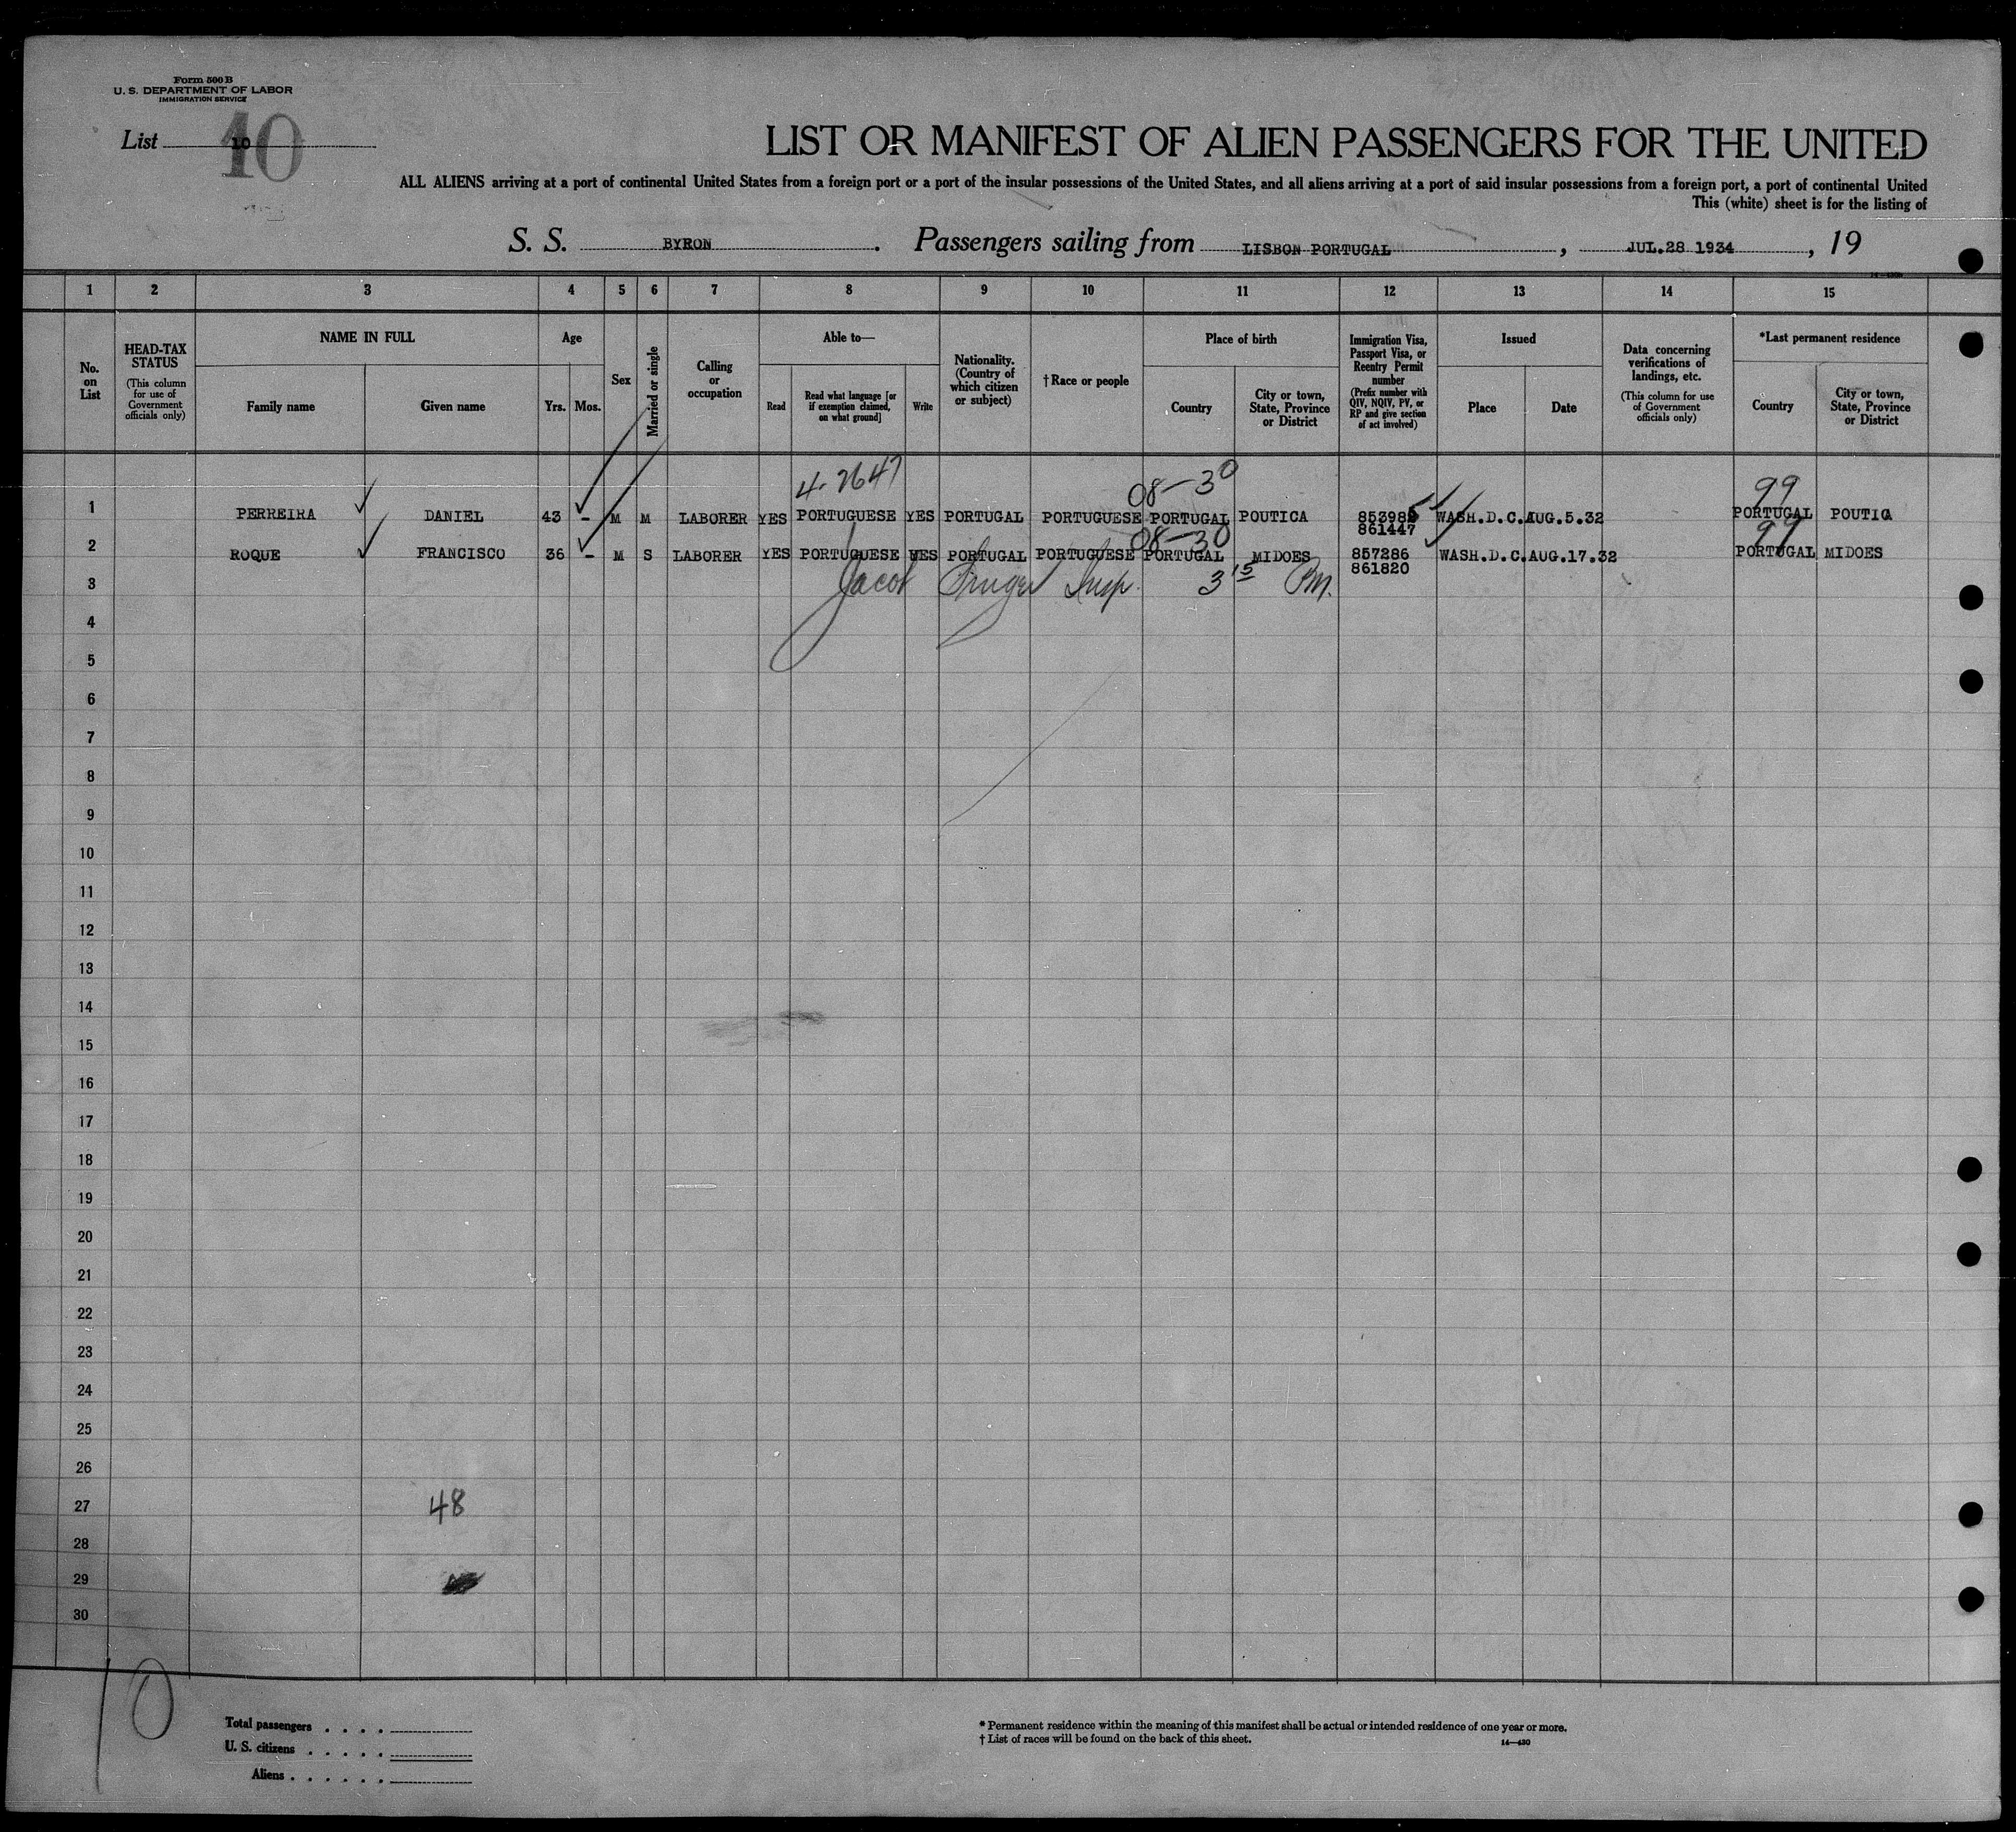 Form 500 B
U. S. DEPARTMENT OF LABOR
IMMIGRATION SERVICE
List 10
10
LIST OR MANIFEST OF ALIEN PASSENGERS FOR THE UNITED
ALL ALIENS arriving at a port of continental United States from a foreign port or a port of the insular possessions of the United States, and all aliens arriving at a port of said insular possessions from a foreign port, a port of continental United
This (white) sheet is for the listing of
S. S. BYRON. Passengers sailing from LISBON PORTUGAL, JUL.28 1934, 19
1 2 3 4 5 6 7 8 9 10 11 12 13 14 15
No. on List
HEAD-TAX STATUS (This column for use of Government officials only)
NAME IN FULL
Family name Given name
Age
Yrs. Mos.
Sex
Married or single
Calling or occupation
Able to—
Read
Read what language [or if exemption claimed, on what ground]
Write
Nationality. (Country of which citizen or subject)
† Race or people
Place of birth
Country
City or town, State, Province or District
Immigration Visa, Passport Visa, or Reentry Permit number (Prefix number with QIV, NQIV, PV, or RP and give section of act involved)
Issued
Place Date
Data concerning verifications of landings, etc. (This column for use of Government officials only)
*Last permanent residence
Country
City or town, State, Province or District
4-2647 08-30 99
1 PERREIRA DANIEL 43 - M M LABORER YES PORTUGUESE YES PORTUGAL PORTUGUESE PORTUGAL POUTICA 853985 WASH.D.C. AUG.5.32 PORTUGAL POUTICA
861447
08-30 99
2 ROQUE FRANCISCO 36 - M S LABORER YES PORTUGUESE YES PORTUGAL PORTUGUESE PORTUGAL MIDOES 857286 WASH.D.C. AUG.17.32 PORTUGAL MIDOES
861820
3 Jacob Insp. 3 15 PM.
4
5
6
7
8
9
10
11
12
13
14
15
16
17
18
19
20
21
22
23
24
25
26
27 48
28
29
30
10
Total passengers . . . .
U. S. citizens . . . . .
Aliens . . . . . .
* Permanent residence within the meaning of this manifest shall be actual or intended residence of one year or more.
† List of races will be found on the back of this sheet.
14—430